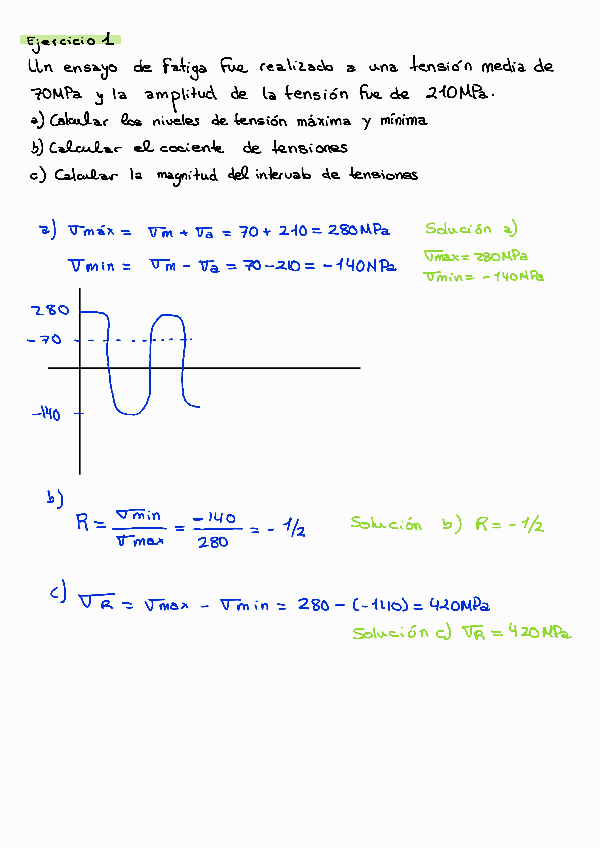 Ejercicio 1
Un ensayo de fatiga fue realizado a una tensión media de
70MPa y la amplitud de la tensión fue de 210MPa.
a) Calcular los niveles de tensión máxima y mínima
b) Calcular el cociente de tensiones
c) Calcular la magnitud del intervalo de tensiones
a) σmáx = σm + σa = 70 + 210 = 280MPa
Solución a)
σmax = 280MPa
σmin = σm - σa = 70 - 210 = -140MPa
σmin = -140MPa
280
-70
-140
b)
R = σmin / σmax = -140 / 280 = - 1/2
Solución b) R = - 1/2
c) σR = σmax - σmin = 280 - (-140) = 420MPa
Solución c) σR = 420MPa